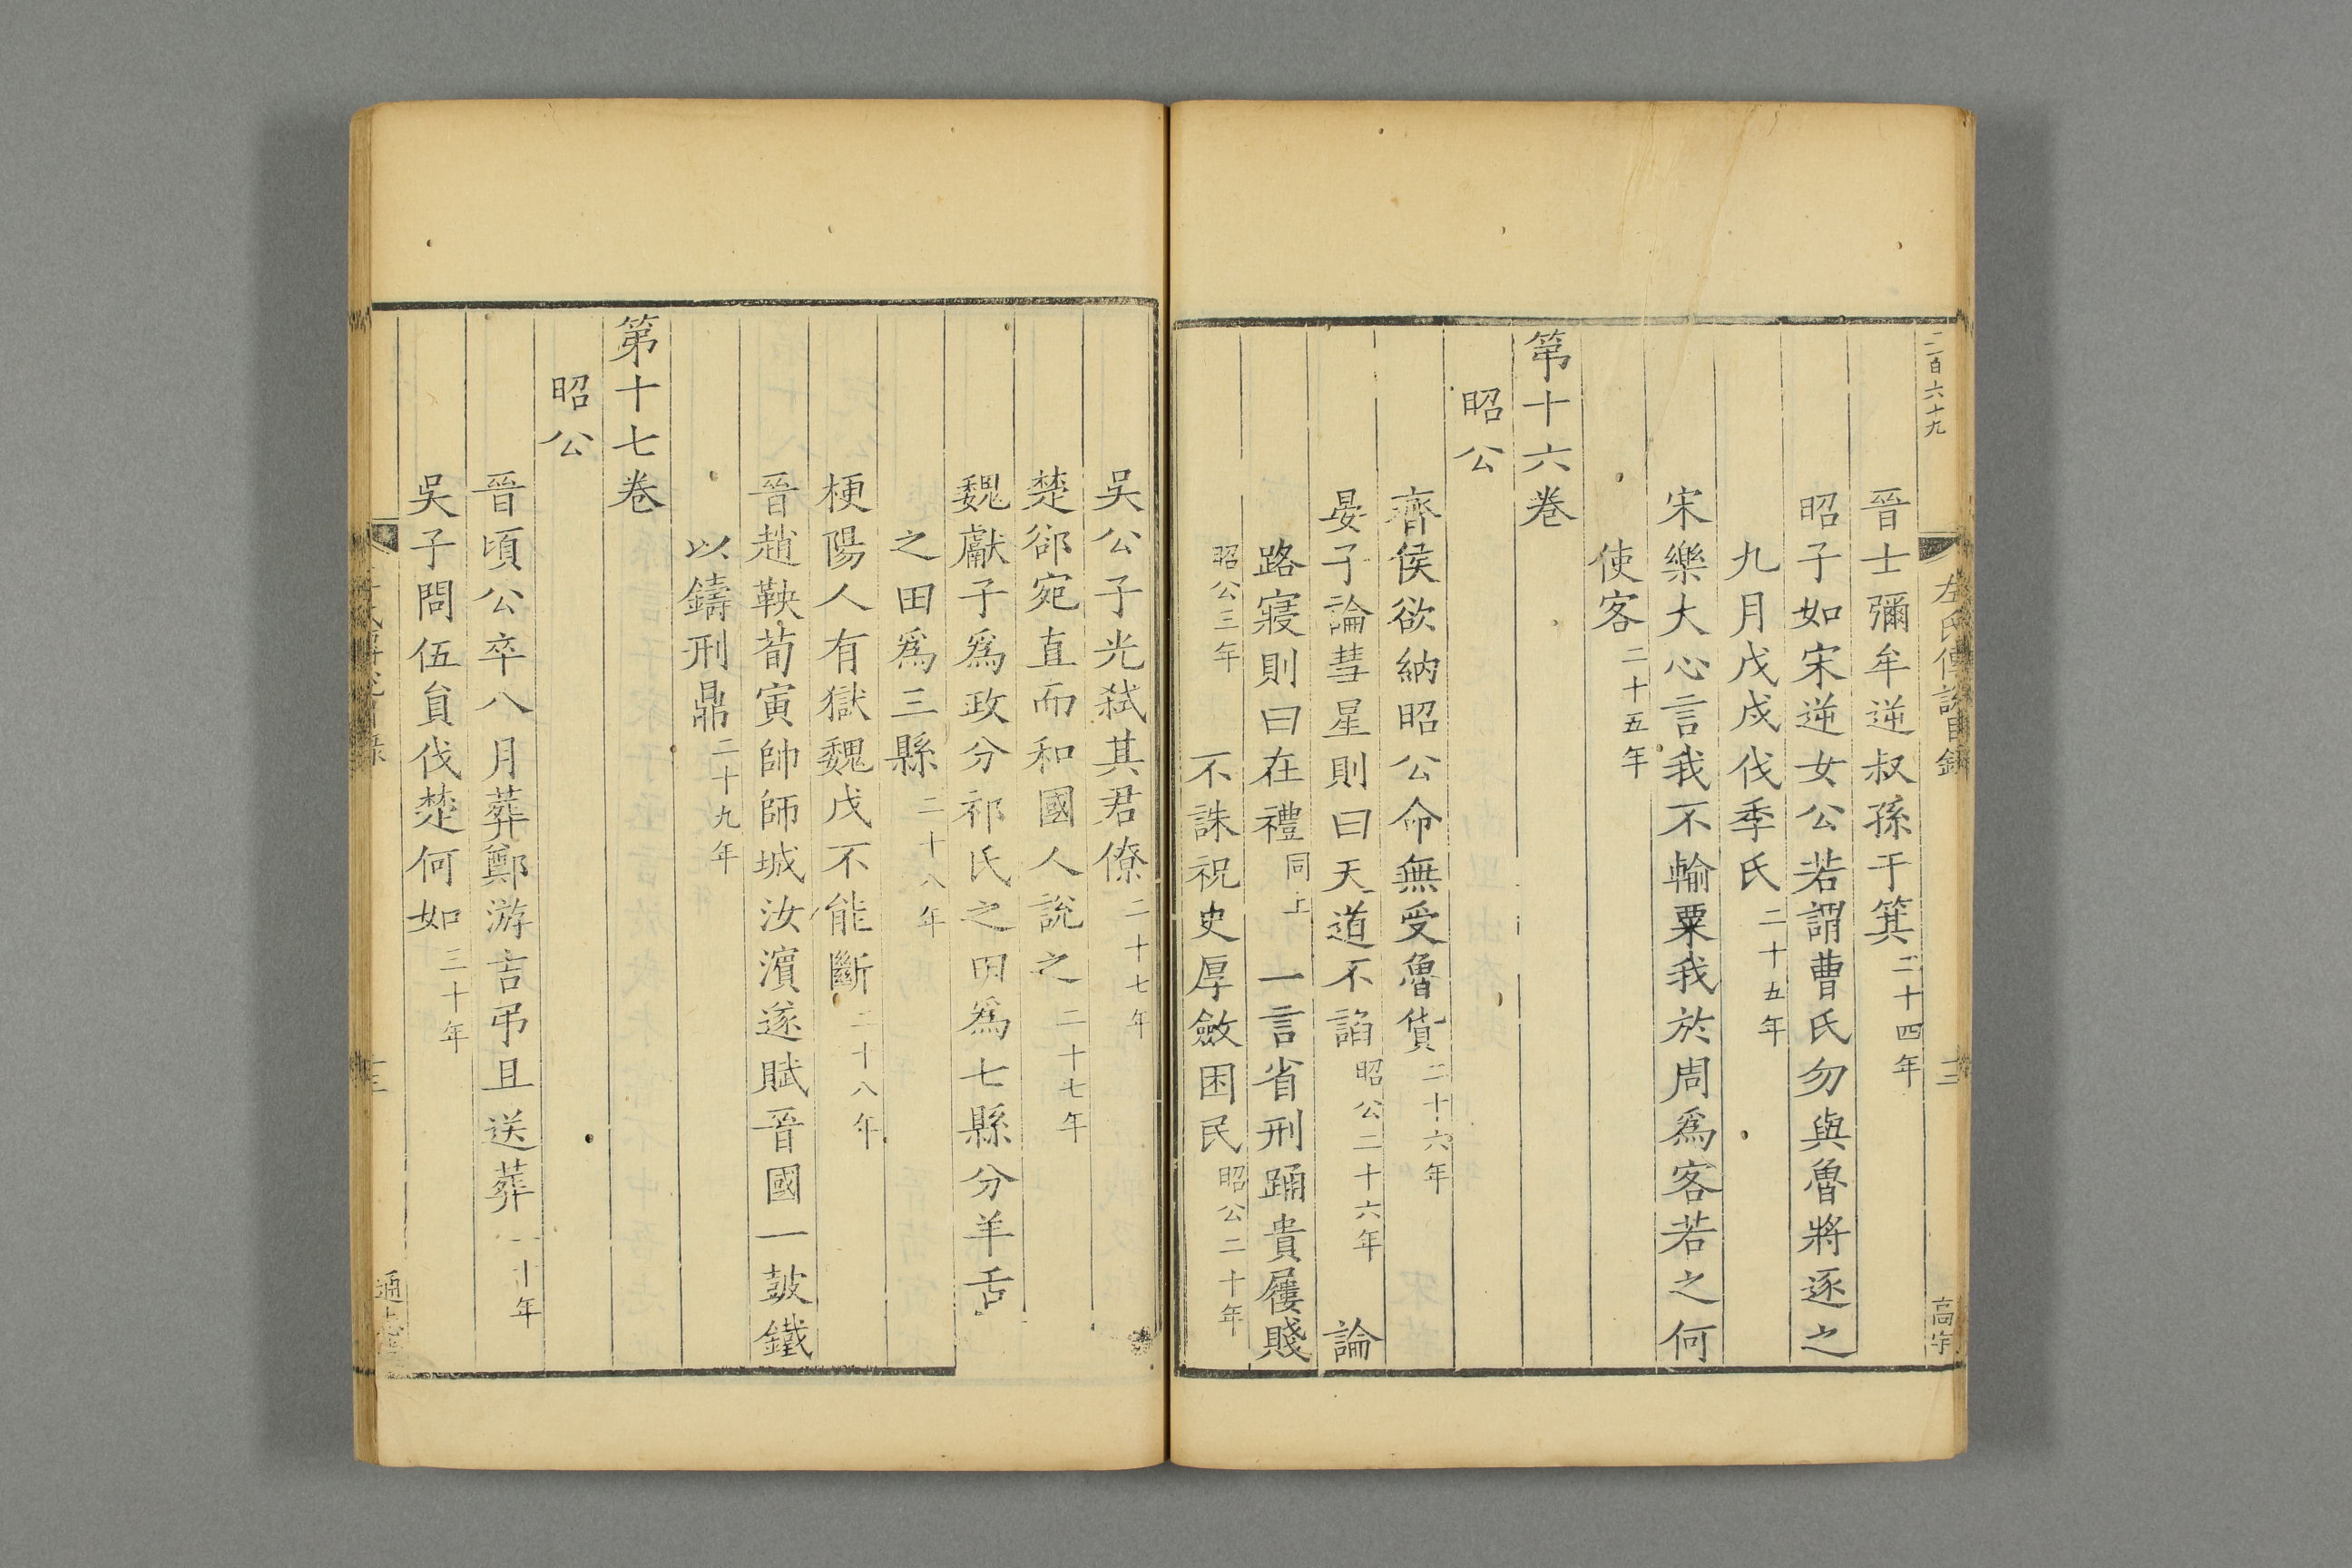 二百六十九 左氏傳說目錄 十三 高宇
晉士彌牟逆叔孫于箕二十四年
昭子如宋逆女公若謂曹氏勿與魯將逐之
九月戊戌伐季氏二十五年
宋樂大心言我不輸粟我於周爲客若之何
使客二十五年
第十六卷
昭公
齊侯欲納昭公命無受魯貨二十六年
晏子論彗星則曰天道不謟昭公二十六年 論
路寢則曰在禮同上 一言省刑踊貴屨賤
昭公三年 不誅祝史厚斂困民昭公二十年
吳公子光弒其君僚二十七年
楚郤宛直而和國人說之二十七年
魏獻子爲政分祁氏之田爲七縣分羊舌
之田爲三縣二十八年
梗陽人有獄魏戊不能斷二十八年
晉趙鞅荀寅帥師城汝濱遂賦晉國一鼓鐵
以鑄刑鼎二十九年
第十七卷
昭公
晉頃公卒八月葬鄭游吉弔且送葬十年
吳子問伍員伐楚何如三十年
十三 通志堂